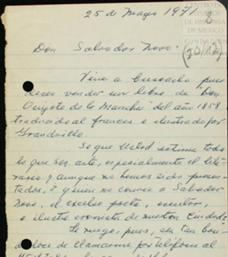 25 de Mayo 1971
Don Salvador Novo:
Vine a buscarlo, pues
deseo vender un libro de "Don
Quijote de la Mancha" del año 1858
traducido al frances e ilustrado por
Grandville.
Se que Usted estima todo
lo que sea arte, especialmente el lite-
rario; y aunque no hemos sido presen-
tados, ? quien no conoce a Salvador
Novo, el excelso poeta, escritor,
e ilustre cronista de nuestra Ciudad?
Le ruego, pues, sea tan bon-
dadoso de llamarme por teléfono al